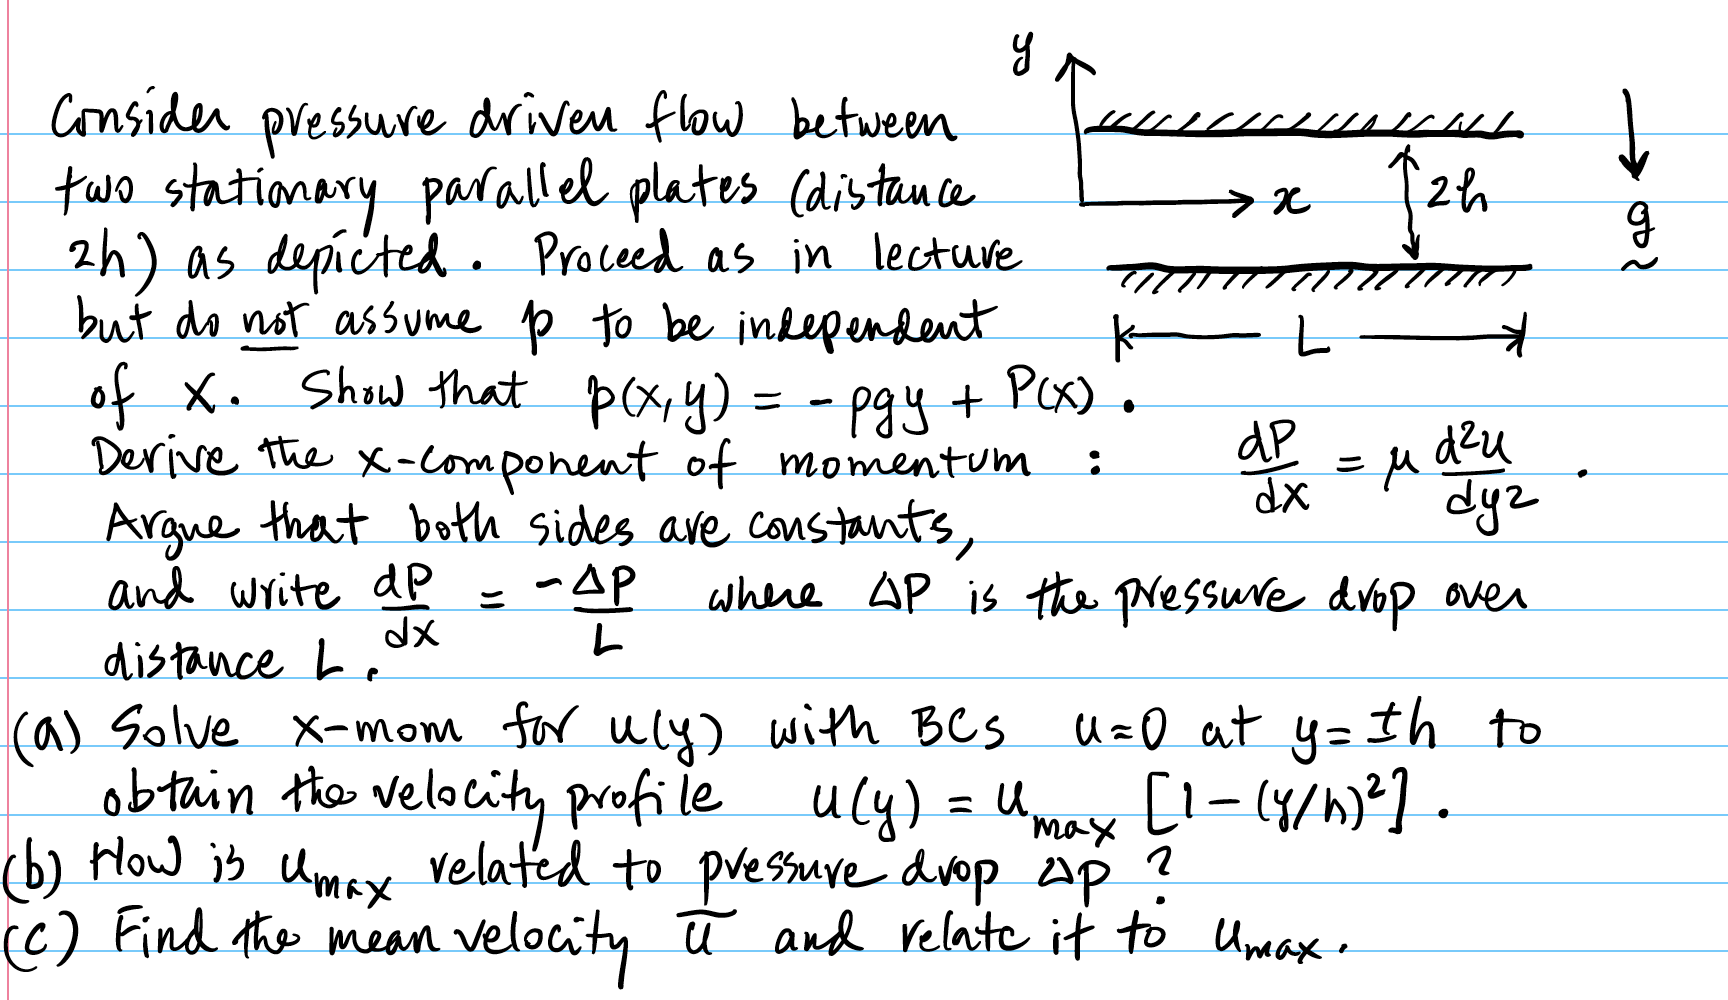 y
Consider pressure driven flow between
two stationary parallel plates (distance
x
2h
g
2h) as depicted. Proceed as in lecture
but do not assume p to be independent
L
of x. Show that p(x,y) = -ρgy + P(x).
Derive the x-component of momentum : dP/dx = μ d²u/dy² .
Argue that both sides are constants,
and write dP/dx = -ΔP/L where ΔP is the pressure drop over
distance L.
(a) Solve x-mom for u(y) with BCs u=0 at y=±h to
obtain the velocity profile u(y) = u_max [1-(y/h)²].
(b) How is u_max related to pressure drop Δp ?
(c) Find the mean velocity ū and relate it to u_max.